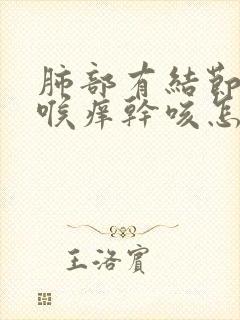 肺部有結節
喉痒幹咳怎
王洛賓